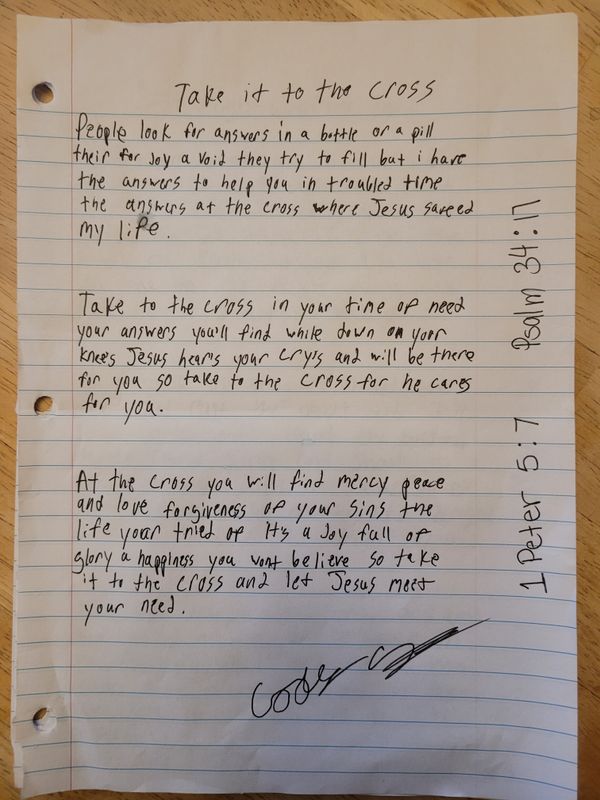 Take it to the cross
People look for answers in a bottle or a pill
their for Joy a void they try to fill but i have
the answers to help you in troubled time
the answers at the cross where Jesus saveed
my life.
Take to the cross in your time of need
your answers you'll find while down on your
knees Jesus hears your cry's and will be there
for you so take to the cross for he cares
for you.
At the cross you will find mercy peace
and love forgiveness of your sins the
life your tried of It's a Joy full of
glory a happiness you wont believe so take
it to the cross and let Jesus meet
your need.
1 Peter 5:7 Psalm 34:17